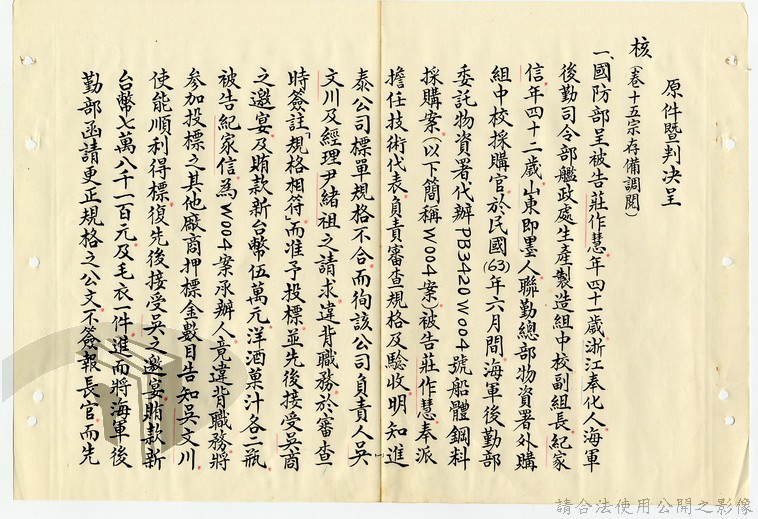 原件暨判決呈
核(卷十五宗存備調閱)
一、國防部呈被告莊作慧年四十一歲浙江奉化人海軍
後勤司令部艦政處生產製造組中校副組長紀家
信年四十二歲山東即墨人聯勤總部物資署外購
組中校採購官於民國(63)年六月間海軍後勤部
委託物資署代辦PB3420W004號船體鋼料
採購案(以下簡稱W004案)被告莊作慧奉派
擔任技術代表負責審查規格及驗收明知進
泰公司標單規格不合而徇該公司負責人吳
文川及經理尹緒祖之請求違背職務於審查
時簽註「規格相符」而准予投標並先後接受吳商
之邀宴及賄款新台幣伍萬元洋酒菓汁各二瓶
被告紀家信為W004案承辦人竟違背職務將
參加投標之其他廠商押標金數目告知吳文川
使能順利得標復先後接受吳之邀宴賄款新
台幣七萬八千一百元及毛衣一件進而將海軍後
勤部函請更正規格之公文不簽報長官而先
請合法使用公開之影像